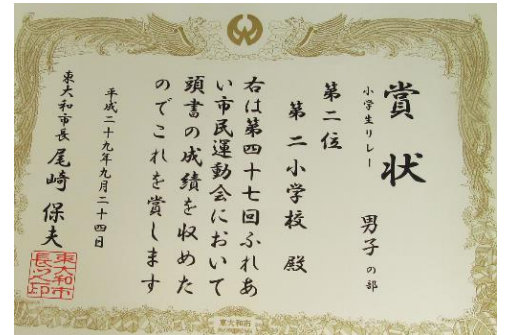 賞状
小学生リレー 男子の部
第二位
第二小学校 殿
右は第四十七回ふれあ
い市民運動会において
頭書の成績を収めた
のでこれを賞します
平成二十九年九月二十四日
東大和市長 尾崎 保夫
東大和市
長之印
東大和市